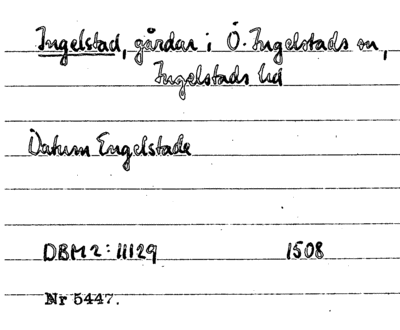 Ingelstad, gårdar i Ö. Ingelstads sn,
Ingelstads hd
Datum Engelstade
DBM 2: 11129 1508
Nr 5447.